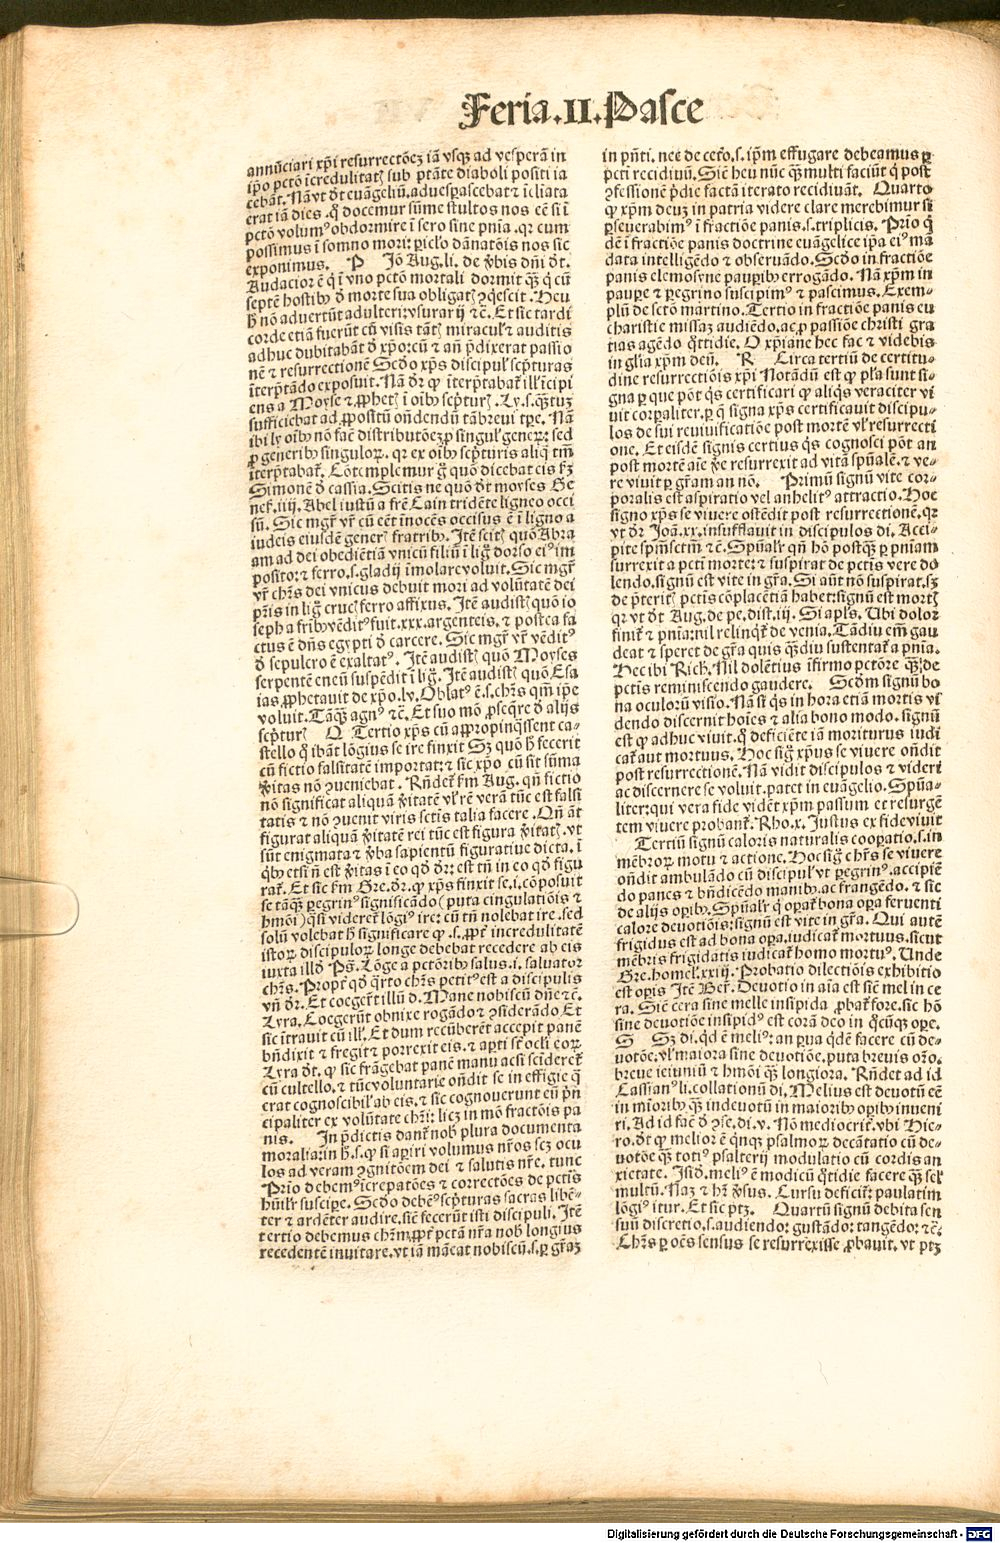 Feria.II.Pasce
annūciari xp̄i resurrectōeȝ iā vsqȝ ad vesperā in
ip̄o pctō īcredulitatꝭ sub ptāte diaboli positi ia
cebāt. Nā vt dr̄ euāgeliū. aduesꝑascebat ⁊ īcliata
erat iā dies. qd̄ docemur sūme stultos nos eē si ī
pctō volumꝰ obdormire ī sero sine pnīa. qr cum
possimus ī somno mori: ꝑicl'o dānatōis nos sic
exponimus. P Iō Aug. li. de v̓bis dn̄i dt̄.
Audacior ē q̇ ī vno pctō mortali dormit qȝ q̇ cū
septē hostibꝰ d̓ morte sua obligatꝭ ꝯq̇escit. Heu
h̄ nō aduertūt adulteri: vsurarij ⁊ ē. Et sic tardi
corde etiā fuerūt cū visis tātꝭ miracul' ⁊ auditis
adhuc dubitabāt d̓ xp̄o: cū ⁊ an̄ p̄dixerat passio
nē ⁊ resurrectionē Scd̓o xp̄s discipul' sc̓pturas
īterp̄tādo exposuit. Nā dr̄ ꝙ īterp̄tabat̄ ill' īcipi
ens a Moyse ⁊ ꝓphetꝭ ī oīb̓ sc̓pturꝭ. Ly. s. qȝtuȝ
sufficiebat ad ꝓpositū on̄dendū tā breui tp̄e. Nā
ibi ly oīb̓ nō facē distributōeȝ ꝓ singul' generꝝ: sed
ꝓ generib̓ singulorꝝ. qr ex oīb̓ sc̓pturis aliq̇ tm̄
īterp̄tabat̄. Cōtemplemur g̊ quō dicebat eis fȝ
Simonē d̓ cassia. Scitis ne quō dt̄ moyses Ge
nes̄. iiij. Abel iustū a fr̄e Cain tridēte ligneo occi
sū. Sic mgr̄ vr̄ cū eēt īnocēs occisus ē ī ligno a
iudeis eiusdē generꝭ fratrib̓. Itē scitꝭ quō Abra
am ad dei obediētiā vnicū filiū ī lig̊ dorso eiꝰ im
posito: ⁊ ferro. s. gladij īmolare voluit. Sic mgr̄
vr̄ chr̄s dei vnicus debuit mori ad volūtatē dei
pr̄is in lig̊ crucꝭ ferro affixus. Itē audistꝭ quō io
seph a fr̄ib̓ vēditꝰ fuit. xxx. argenteis. ⁊ postea fa
ctus ē dn̄s egypti d̓ carcere. Sic mgr̄ vr̄ vēditꝰ
d̓ sepulcro ē exaltatꝰ. Itē audistꝭ quō Moyses
serpentē eneū suspēdit ī lig̊. Itē audistꝭ quō Esa
ias ꝓphetauit de xp̄o. lv. Oblatꝰ ē. s. chr̄s qm̄ ip̄e
voluit. Tāqȝ agnꝰ ⁊ē. Et suo mō ꝓseq̄re d̓ alijs
sc̓pturꝭ Q Tertio xp̄s cū appropinq̄ssent ca-
stello q̊ ibāt lōgius se ire finxit Sȝ quō h̄ fecerit
cū fictio falsitatē importat: ⁊ sic xp̄o cū sit sūma
v̓itas nō ꝯueniebat. Rn̄det̄ fm̄ Aug. qn̄ fictio
nō significat aliquā v̓itatē vl' rē verā tūc est falsi
tatis ⁊ nō ꝯuenit viris sctīs talia facere. Qn̄ āt
figurat aliquā v̓itatē rei tūc est figura v̓itatꝭ. vt
sūt enigmata ⁊ v̓ba sapientū figuratiue dicta. ī
q̇b̓ etsi n̄ est v̓itas ī eo qd̓ dr̄: est tn̄ in eo qd̓ figu
rat̄. Et sic fm̄ Gre. dr̄. ꝙ xp̄s finxit se. i. cōposuit
se tāqȝ ꝑegrinꝰ significādo (puta cingulatiōis ⁊
hmōi) q̄si videret̄ lōgiꝰ ire: cū tn̄ nolebat ire. sed
solū volebat h̄ significare ꝙ .s. ꝓpt̄ incredulitatē
istorꝝ discipulorꝝ longe debebat recedere ab eis
iuxta illd̓ Ps̄. Lōge a pctōrib̓ salus. i. saluator
chr̄s. Propt̄ qd̓ q̄rto chr̄s petitꝰ est a discipulis
vn̄ dr̄. Et coeger̄t illū d. Mane nobiscū dn̄e ⁊ē.
Lyra. Coegerūt obnixe rogādo ⁊ ꝯsiderādo Et
sic ītrauit cū ill'. Et dum recūberēt accepit panē
bn̄dixit ⁊ fregit ⁊ porrexit eis. ⁊ aꝑti st̄ ocl'i eorꝝ
Lyra dt̄. ꝙ sic frāgebat panē manu acsi scīderet̄
cū cultello. ⁊ tūc voluntarie on̄dit se in effigie q̄
erat cognoscibil' ab eis. ⁊ sic cognouerunt eū p̄n
cipaliter ex volūtate chr̄i: licȝ in mō fractōis pa
nis. In p̄dictis dant̄ nob̓ plura documenta
moralia: in h̄. s. ꝙ si aꝑiri volumus nr̄os scȝ ocu
los ad veram ꝯgnitōem dei ⁊ salutis nr̄e. tunc
Prio debemꝰ īcrepatōes ⁊ correctōes de pctīs
hūil'r suscipe. Scd̓o debēꝰ sc̓pturas sacras libē-
ter ⁊ ardēter audire. siē fecerūt isti discipuli. Itē
tertio debemus chr̄m: ꝓpt̄ pctā nr̄a nob̓ longius
recedentē inuitare. vt iā māeat nobiscū. s. ꝑ gr̄aȝ
in pn̄ti. nec de cet̓o. s. ip̄m effugare debeamus ꝑ
pcti recidiuū. Siē heu nūc qȝmulti faciūt q̇ post
ꝯfessionē p̄die factā iterato recidiuāt. Quarto
ꝙ xp̄m deuȝ in patria videre clare merebimur si
ꝑseuerabimꝰ ī fractiōe panis. s. triplicis. Prīo q̄
dē ī fractiōe panis doctrine euāgelice ip̄a eiꝰ mā
data intelligēdo ⁊ obseruādo. Scd̓o in fractiōe
panis elemosyne pauꝑib̓ errogādo. Nā xp̄m in
pauꝑe ⁊ ꝑegrino suscipimꝰ ⁊ pascimus. Exem-
plū de sctō martino. Tertio in fractiōe panis eu
charistie missaȝ audiēdo. ac ꝓ passiōe christi gra
tias agēdo q̊ttidie. O xp̄iane hec fac ⁊ videbis
in gl'ia xp̄m deū. R Circa tertiū de certitu-
dine resurrectiōis xp̄i Notādū est ꝙ pl'a sunt si-
gna ꝑ que pōt q̇s certificari ꝙ aliq̇s veraciter vi
uit corꝑaliter. ꝑ q̄ signa xp̄s certificauit discipu-
los de sui reuiuificatiōe post mortē vl' resurrecti
one. Et eisdē signis certius q̇s cognosci pōt an
post mortē aīe v̓e resurrexit ad vitā spūalē. ⁊ ve-
re viuit ꝑ gr̄am an nō. Primū signū vite cor-
poralis est aspiratio vel anhelitꝰ attractio. Hoc
signo xp̄s se viuere ostēdit post resurrectionē. qr
vt dr̄ Joā. xx. insufflauit in discipulos di. Acci-
pite spm̄sctm̄ ⁊ē. Spūal'r qn̄ hō postqȝ ꝑ pnīam
surrexit a pctī morte: ⁊ suspirat de pctīs vere do
lendo. signū est vite in gr̄a. Si aūt nō suspirat. sȝ
de p̄teritꝭ pctīs cōplacētiā habet: signū est mortꝭ
qr vt dt̄ Aug. de pe. dist. iij. Si apl's. Ubi dolor
finit̄ ⁊ pnīa: nil relinq̇t̄ de venia. Tādiu em̄ gau
deat ⁊ speret de gr̄a quis qȝdiu sustentat̄ a pnīa.
Hec ibi Rich. Nil dolētius īfirmo pctōre qȝ: de
pctīs reminiscendo gaudere. Scd̓m signū bo
na oculorū visio. Nā st q̇s in hora etiā mortis vi
dendo discernit hoīes ⁊ alia bono modo. signū
est ꝙ adhuc viuit. q̇ deficiēte iā moriturus iudi
cat̄ aut mortuus. Hoc sig̊ xp̄us se viuere on̄dit
post resurrectionē. Nā vidit discipulos ⁊ videri
ac discernere se voluit. patet in euāgelio. Spūa-
liter: qui vera fide vidēt xp̄m passum et resurgē
tem viuere probant̄. Rho. x. Justus ex fide viuit
Tertiū signū caloris naturalis cooꝑatio. s. in
mēbrorꝝ motu ⁊ actione. Hoc sig̊ chr̄s se viuere
on̄dit ambulādo cū discipul' vt ꝑegrinꝰ. accipiē
do panes ⁊ bn̄dicēdo manib̓. ac frangēdo. ⁊ sic
de alijs oꝑib̓. Spūal'r q̇ oꝑat̄ bona oꝑa feruenti
calore deuotiōis: signū est vite in gr̄a. Qui autē
frigidus est ad bona oꝑa. iudicat̄ mortuus. sicut
mēbris frigidatis iudicat̄ homo mortuꝰ. Unde
Gre. homel'. xxiij. Probatio dilectiōis exhibitio
est oꝑis Itē Ber̄. Deuotio in aīa est siē mel in ce
ra. Siē cera sine melle insipida ꝓbat̄ fore. sic hō
sine deuotiōe insipidꝰ est corā deo in q̊cūqȝ oꝑe.
S Sȝ di. qd̓ ē meliꝰ: an ꝑua qd̓ē facere cū de-
uotōe: vl' maiora sine deuotiōe. puta breuis or̄o.
breue ieiuniū ⁊ hmōi qȝ longiora. Rn̄det ad id
Cassianꝰ li. collationū di. Melius est deuotū eē
in mīorib̓ qȝ indeuotū in maiorib̓ oꝑib̓ inueni
ri. Ad id facē d̓ ꝯse. di. v. Nō mediocrit̄. vbi Hie-
ro. dt̄ ꝙ melior ē q̇nqȝ psalmorꝝ decātatio cū de-
uotōe qȝ totiꝰ psalterij modulatio cū cordis an
xietate. Isid̓. meliꝰ ē modicū q̊tidie facere qȝ sel'
multū. Naȝ ⁊ hȝ v̓sus. Cursu deficit̄: paulatim
lōgiꝰ itur. Et sic ptȝ. Quartū signū debita sen
suū discretio. s. audiendo: gustādo: tangēdo: ⁊ē.
Chr̄s ꝑ oēs sensus se resurrexisse ꝓbauit. vt ptȝ
Digitalisierung gefördert durch die Deutsche Forschungsgemeinschaft - DFG